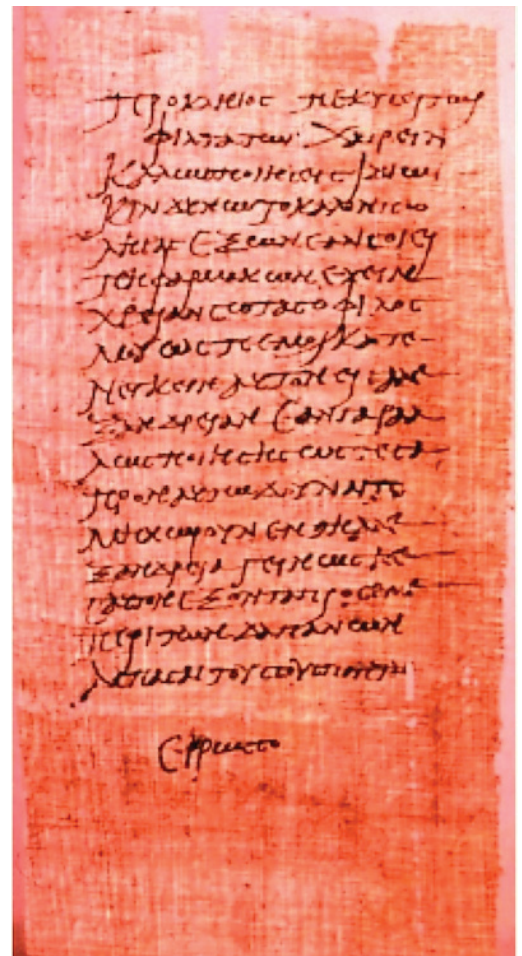 προκληιος πεκυσει τωι
φιλτατωι χαιρειν
καλως ποιησεις ιδιωι
κινδυνω το καλον πω
λησας εξ ων εαν σοι ει
πη φαρμακων εχειν
χρειαν σωτας ο φιλος
μου ωστε εμοι κατε
νεγκειν αυτον εις αλε
ξανδρειαν εαν γαρ αλ
λως ποιησης ωστε σα
προν αυτω δουναι το
μη χωρουν εν τη αλε
ξανδρεια γεινωσκε
σαυτον εξοντα προς εμε
περι των δαπανων
ασπασαι τους σους παντας
ερρωσο